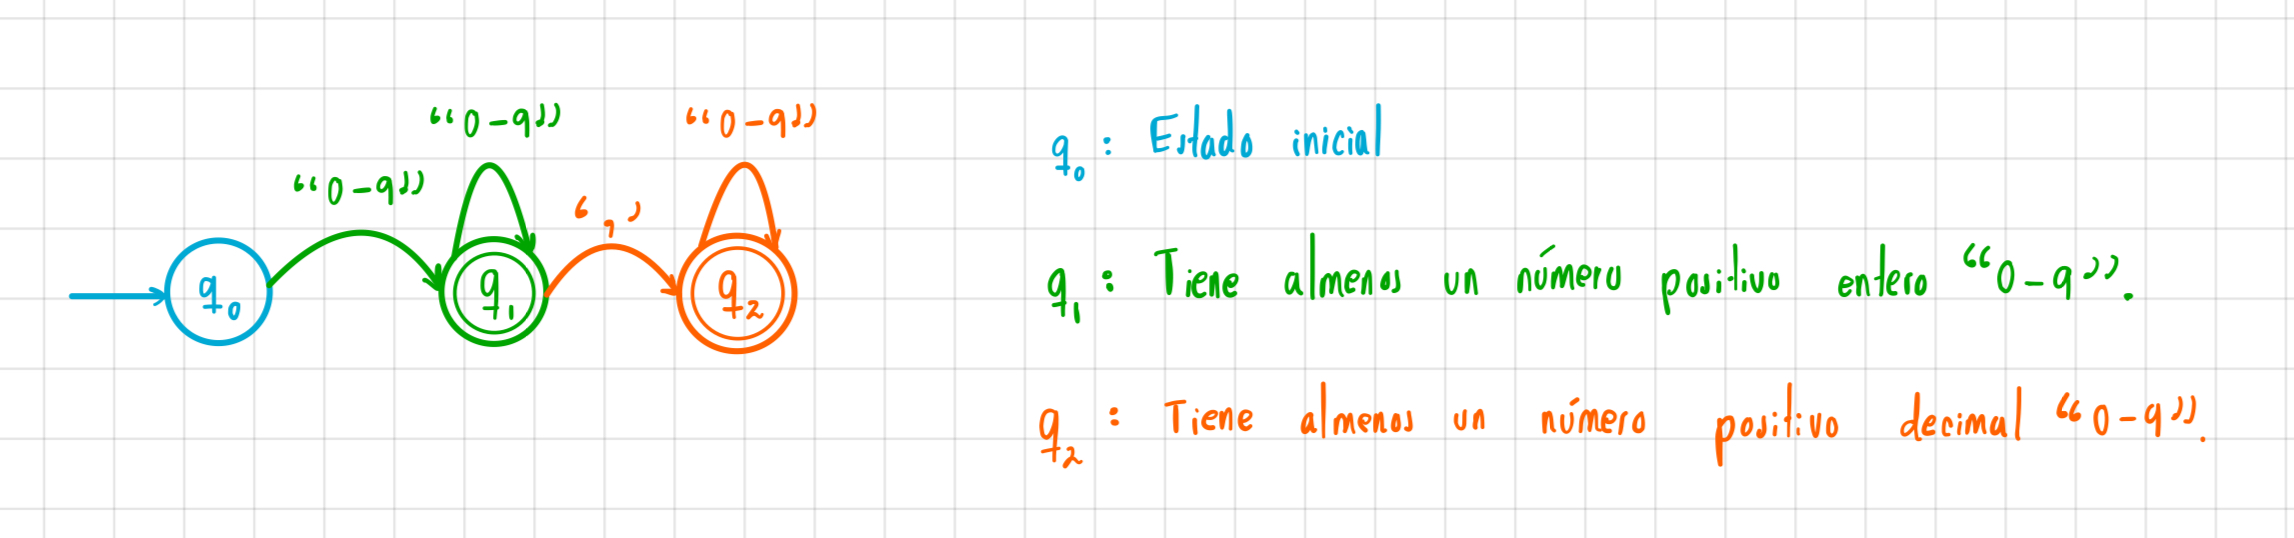 “0-9”
“0-9”
“0-9”
‘,’
q0
q1
q2
q0 : Estado inicial
q1 : Tiene almenos un número positivo entero “0-9”.
q2 : Tiene almenos un número positivo decimal “0-9”.